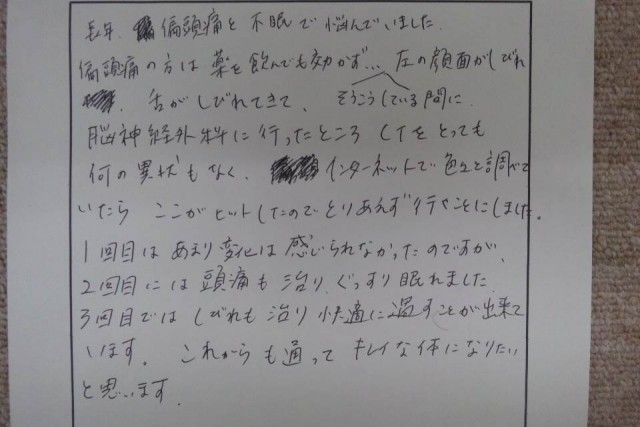 長年、偏頭痛と不眠で悩んでいました。
偏頭痛の方は薬を飲んでも効かず… 左の顔面がしびれ
、舌がしびれてきて、そうこうしている間に
脳神経外科に行ったところ CTをとっても
何の異状もなく、インターネットで色々と調べて
いたら ここがヒットしたのでとりあえず行くことにしました。
1回目はあまり変化は感じられなかったのですが、
2回目には頭痛も治り、ぐっすり眠れました。
3回目ではしびれも治り快適に過すことが出来て
います。これからも通ってキレイな体になりたい
と思います。